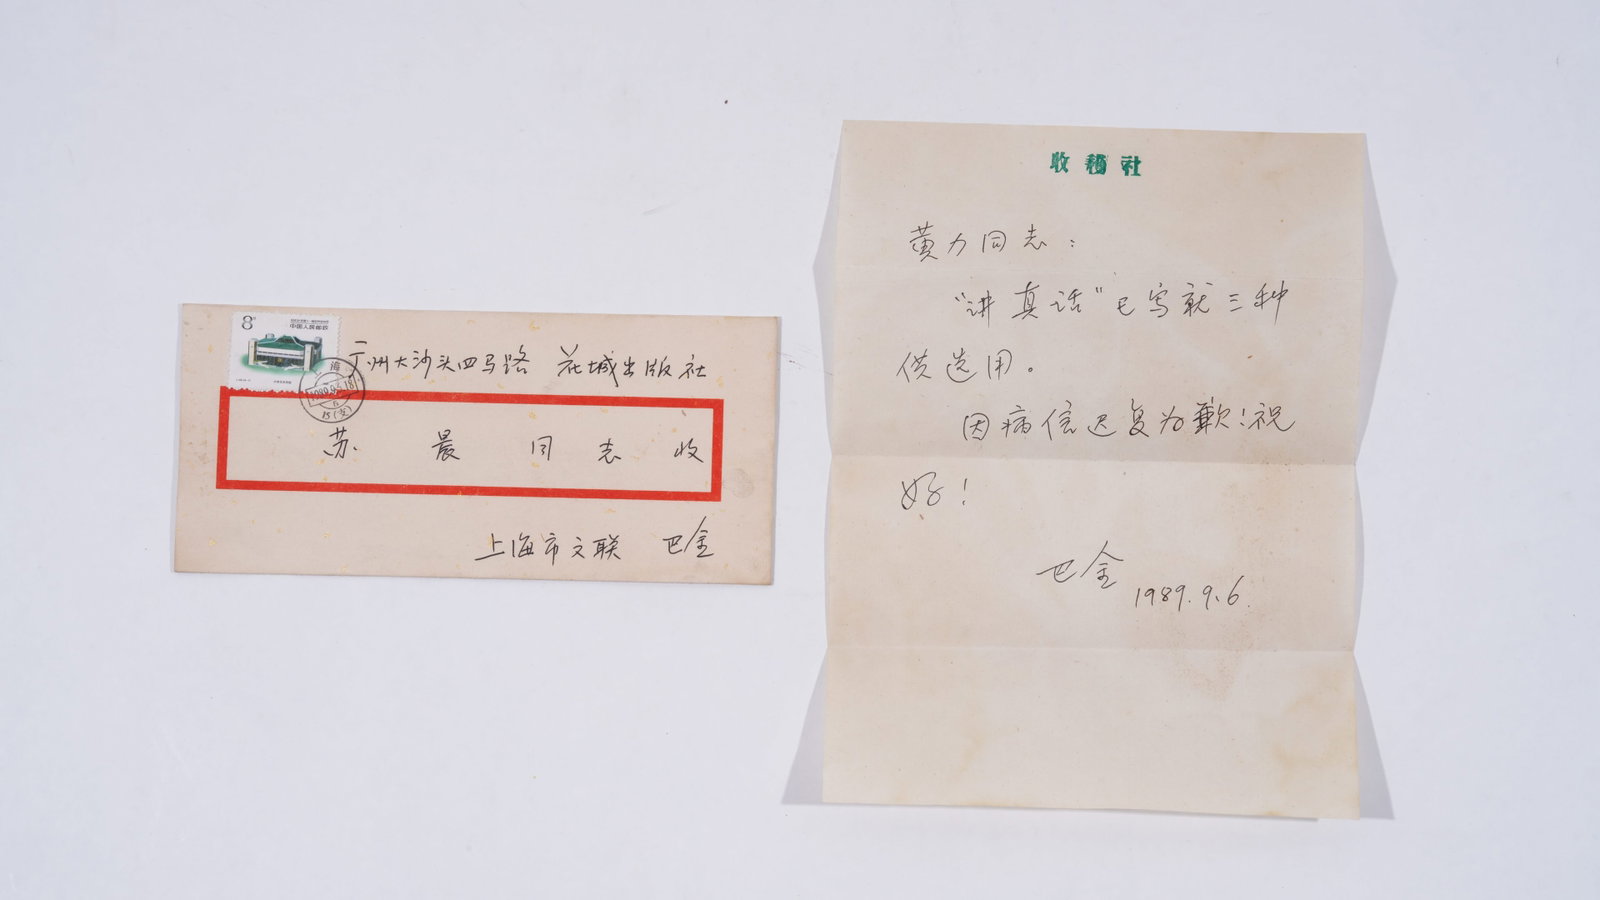 8分
中国人民邮政
上海
1990.9.18
15(支)
广州大沙头四马路 花城出版社
苏晨同志收
上海市文联 巴金
收穫社
黄力同志：
“讲真话”已写就三种
供选用。
因病信迟复为歉！祝
好！
巴金
1989.9.6.